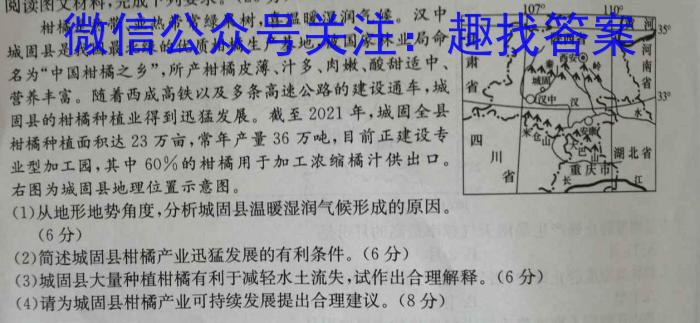 阅读图文材料,完成下列要求。
微信公众号关注：趣找答案
名为“中国柑橘之乡”,所产柑橘皮薄、汁多、肉嫩、酸甜适中、
营养丰富。随着西成高铁以及多条高速公路的建设通车,城
固县的柑橘种植业得到迅猛发展。截至 2021 年,城固全县
柑橘种植面积达 23 万亩,常年产量 36 万吨,目前正建设专
业型加工园,其中 60%的柑橘用于加工浓缩橘汁供出口。
右图为城固县地理位置示意图。
(1)从地形地势角度,分析城固县温暖湿润气候形成的原因。
(6 分)
(2)简述城固县柑橘产业迅猛发展的有利条件。(6 分)
(3)城固县大量种植柑橘有利于减轻水土流失,试作出合理解释。(6 分)
(4)请为城固县柑橘产业可持续发展提出合理建议。(8 分)
107°
110°
35°
33°
黄河
河南省
肃省
西安
秦岭
城固
汉中
汉
水
米仓山
安康
巴山
四川省
重庆市
湖北省
长江